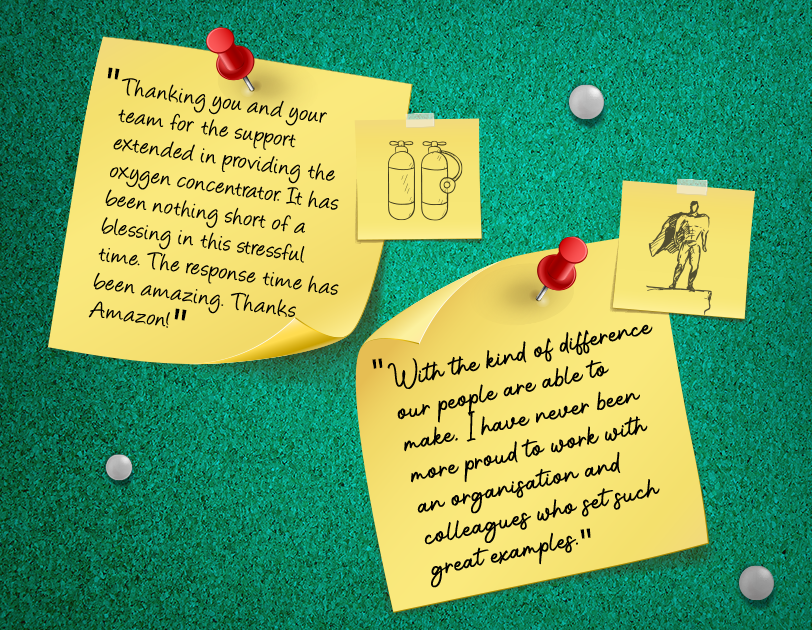 "Thanking you and your
team for the support
extended in providing the
oxygen concentrator. It has
been nothing short of a
blessing in this stressful
time. The response time has
been amazing. Thanks
Amazon!"
"With the kind of difference
our people are able to
make. I have never been
more proud to work with
an organisation and
colleagues who set such
great examples."